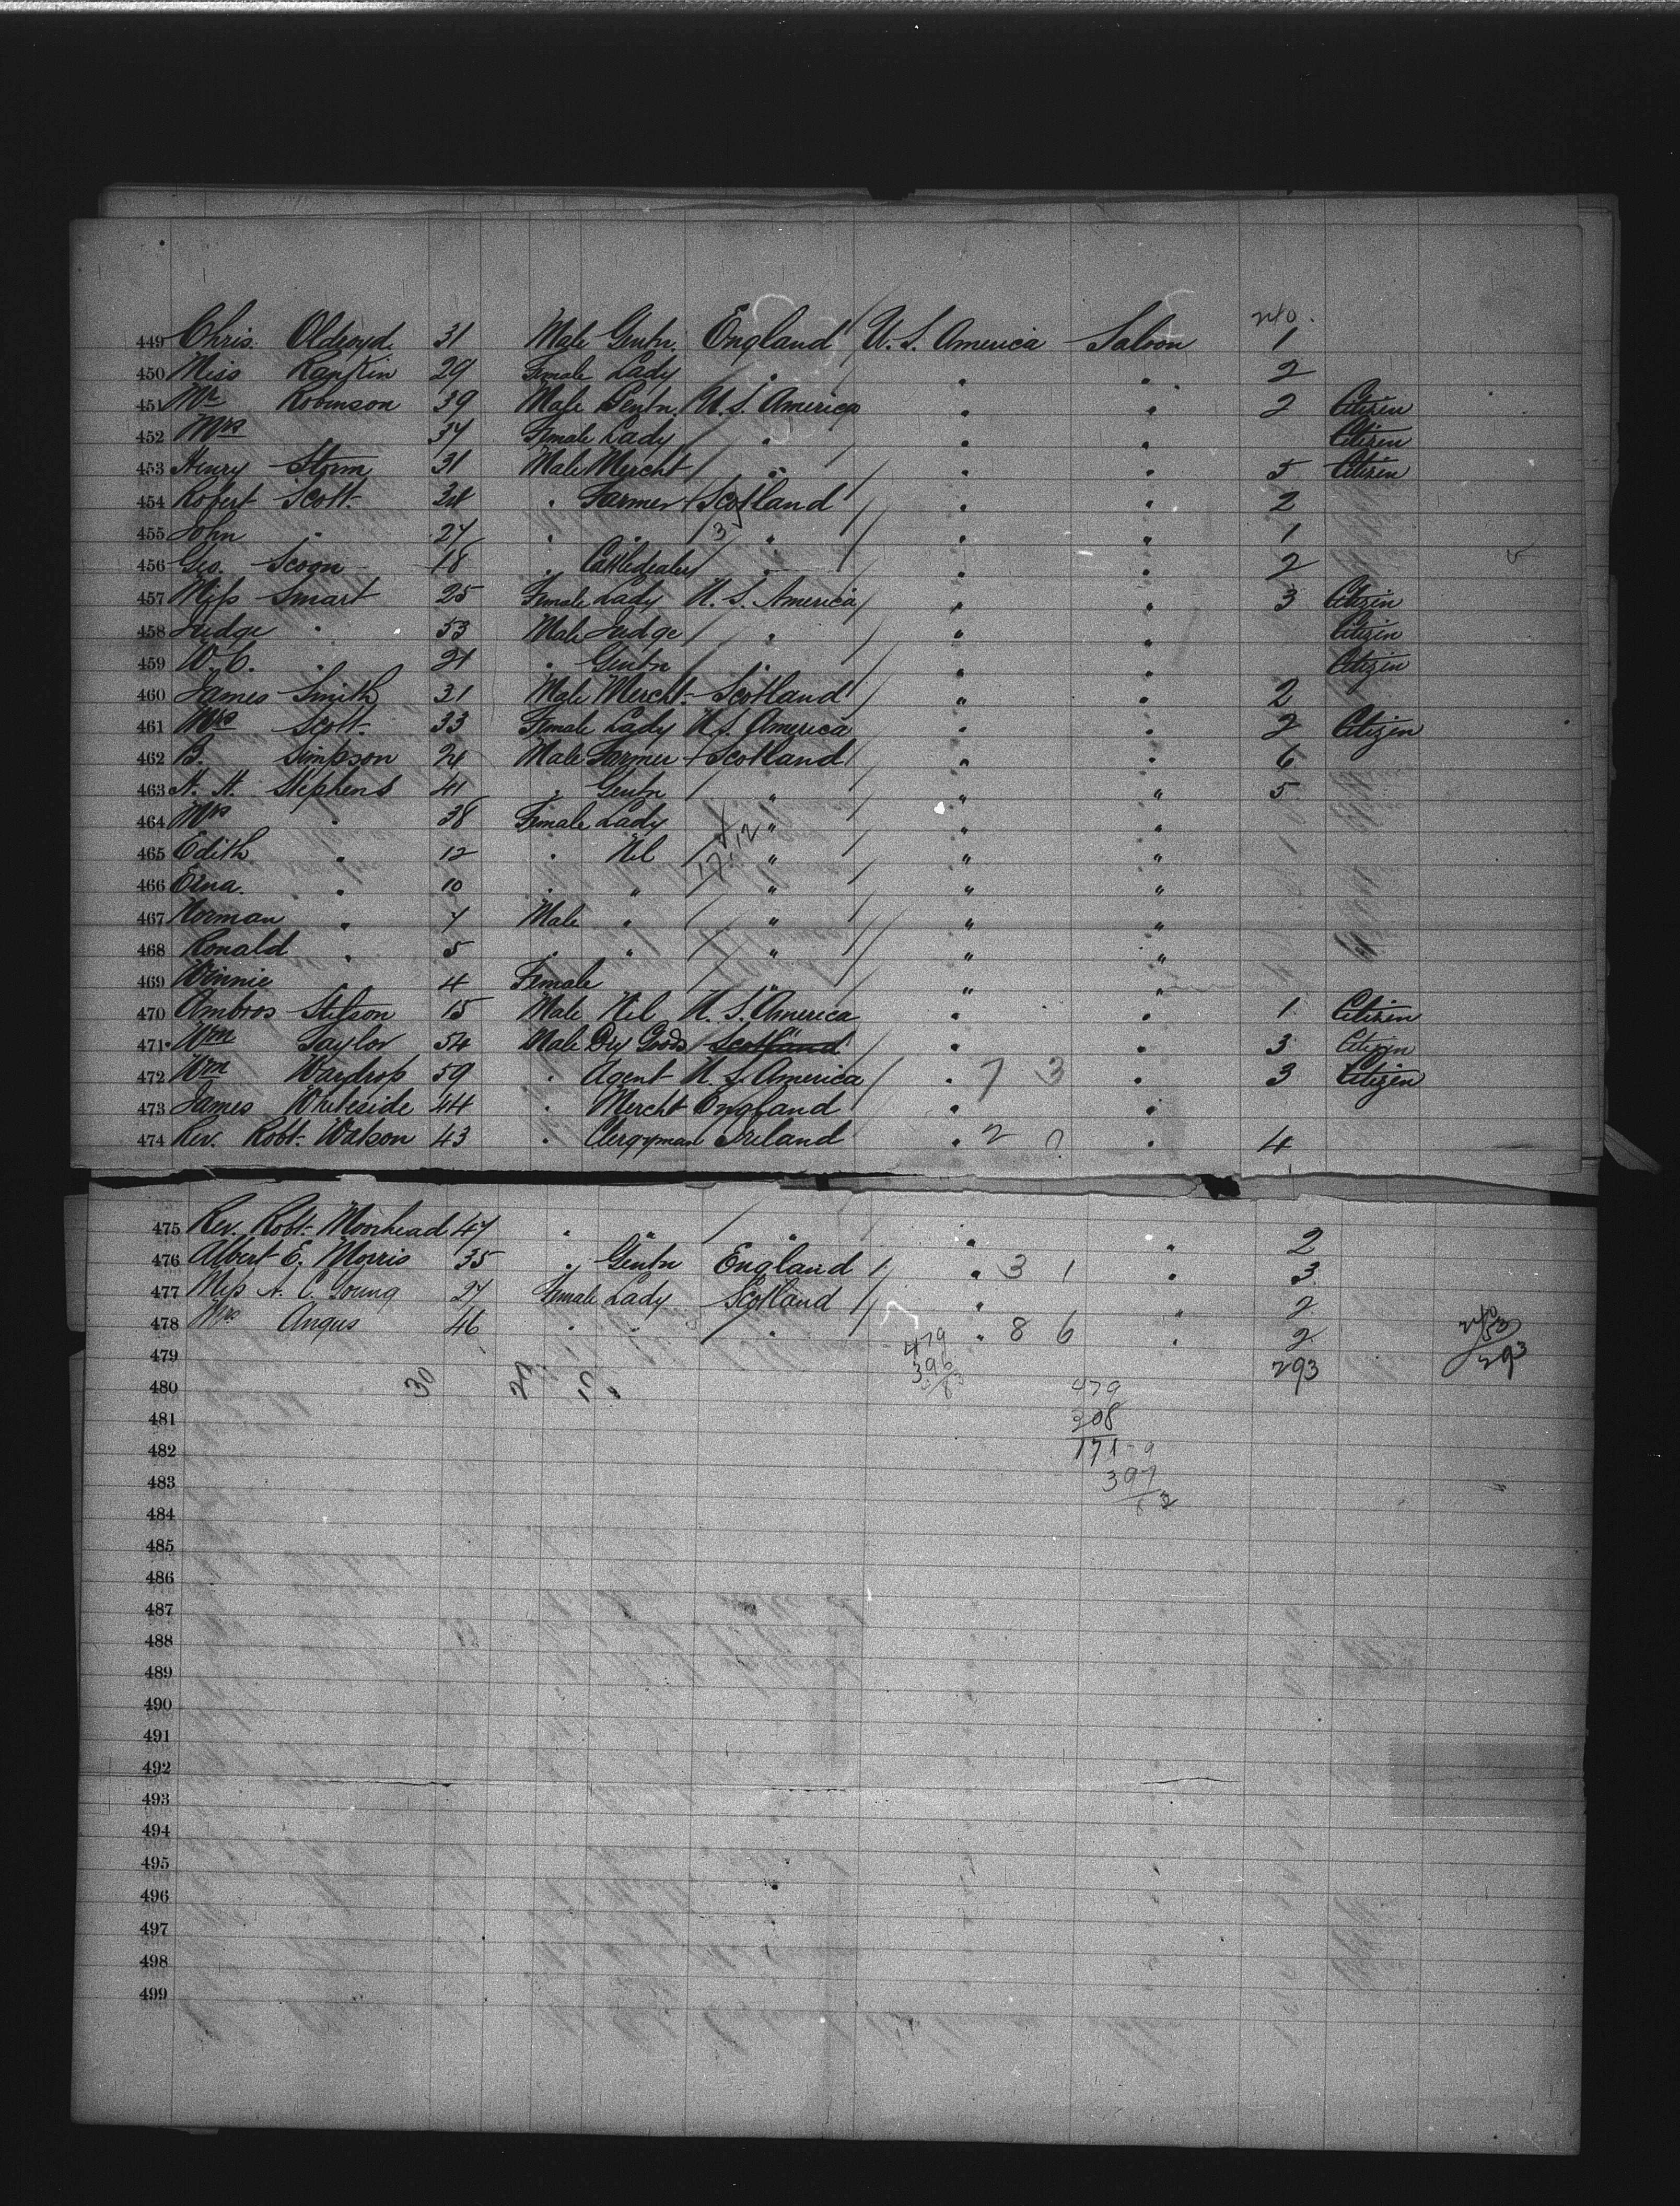 240.
449 Chris. Oldroyd 31 Male Gentn. England U. S. America Saloon 1
450 Miss Rankin 29 Female Lady " " " 2
451 Mr Robinson 39 Male Gentn. U. S. America " " 2 Citizen
452 Mrs 37 Female Lady " " " Citizen
453 Henry Storm 31 Male Mercht " " " 5 Citizen
454 Robert Scott 34 " Farmer Scotland " " 2
455 John " 27 " " 3 " " " 1
456 Geo. Scoon 18 " Cattledealer " " " 2
457 Miss Smart 25 Female Lady U. S. America " " 3 Citizen
458 Judge " 53 Male Judge " " " Citizen
459 W. C. " 21 " Gentn " " " Citizen
460 James Smith 31 Male Mercht. Scotland " " 2
461 Mrs Scott. 33 Female Lady U. S. America " " 2 Citizen
462 B. Simpson 24 Male Farmer Scotland " " 6
463 N. H. Stephens 41 " Gentn " " " 5
464 Mrs " 38 Female Lady " " "
465 Edith " 12 " Nil " " "
466 Erna. " 10 " " " " "
467 Norman " 7 Male " " " "
468 Ronald " 5 " " " " "
469 Winnie " 4 Female " " "
470 Ambros Stetson 15 Male Nil U. S. America " " 1 Citizen
471 Wm Taylor 54 Male Dry Goods Scotland " " 3 Citizen
472 Wm Wardrop 59 " Agent U. S. America " 73 " 3 Citizen
473 James Whiteside 44 " Mercht England " "
474 Rev. Robt. Watson 43 " Clergyman Ireland " 2 " 4
475 Rev. Robt. Moorhead 47 " " " " " 2
476 Albert E. Morris 35 " Gentn England " 31 " 3
477 Miss A. C. Young 27 Female Lady Scotland " " 2
478 Mrs Angus 46 " " " " 86 " 2
479 479 293 240
53
293
480 30 396 479
83
481 308
482 171
483 397
484
485
486
487
488
489
490
491
492
493
494
495
496
497
498
499